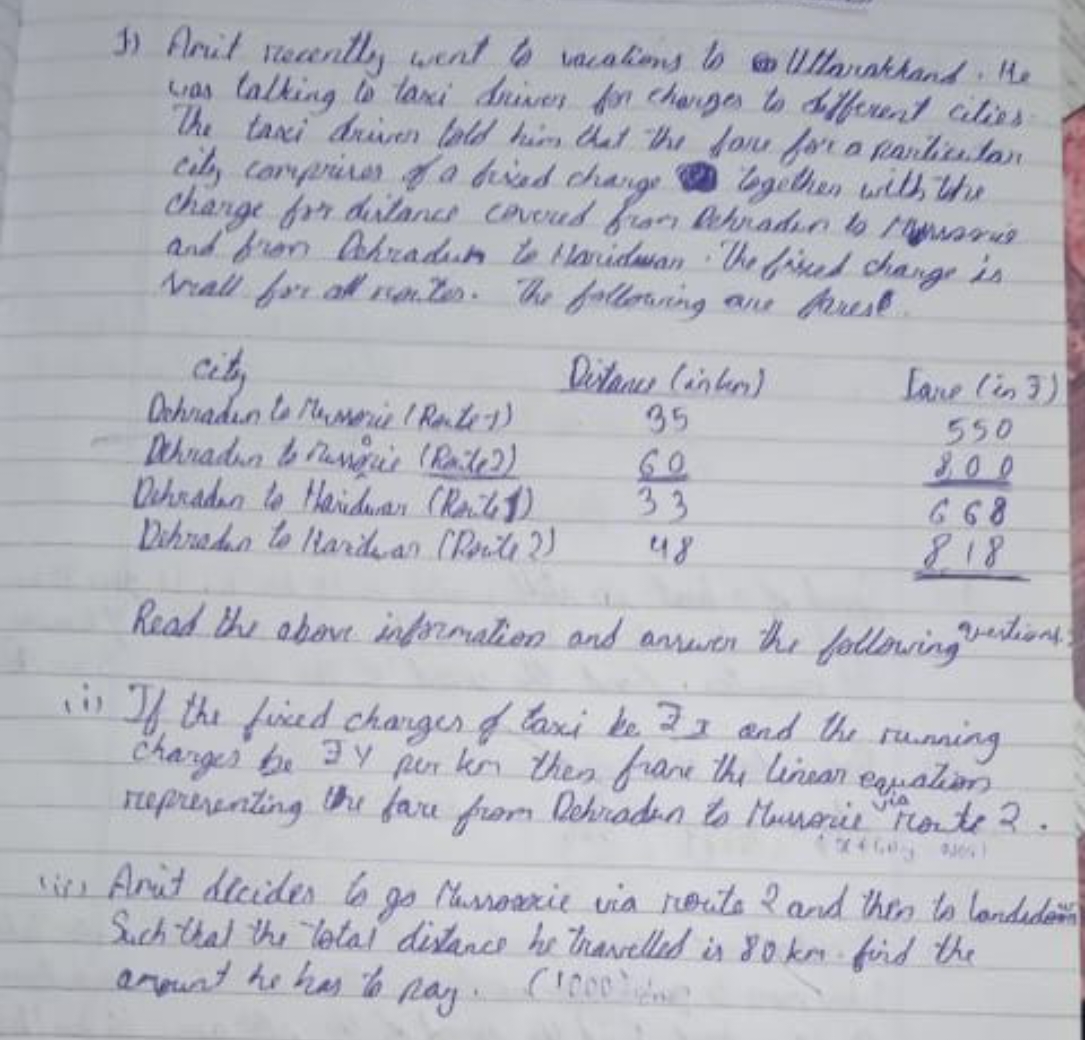 1) Amit recently went to vacations to Uttarakhand. He
was talking to taxi driver for charges to different cities
The taxi driver told him that the fare for a particular
city comprises of a fixed charge together with the
charge for distance covered from Dehradun to Mussorie
and from Dehradun to Haridwar. The fixed charge is
small for all routes. The following are fares
City Distance (in km) Fare (in ₹)
Dehradun to Mussorie (Route-1) 35 550
Dehradun to Mussorie (Route 2) 60 800
Dehradun to Haridwar (Route 1) 33 668
Dehradun to Haridwar (Route 2) 48 818
Read the above information and answer the following questions.
(i) If the fixed charges of taxi be ₹ x and the running
charges be ₹ y per km then frame the linear equation
representing the fare from Dehradun to Mussorie via route 2.
(ii) Amit decides to go Mussorie via route 2 and then to
Such that the total distance he travelled is 80 km. find the
amount he has to pay. (1000